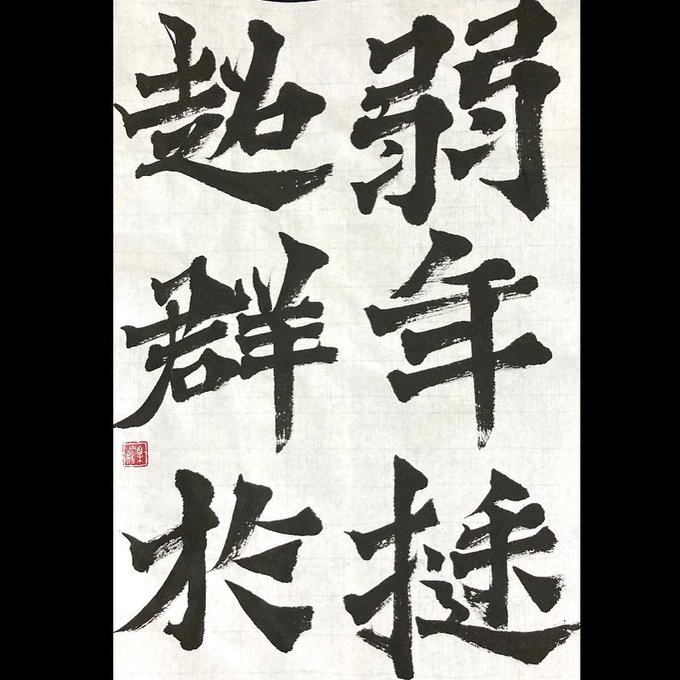 弱年挺
超群於